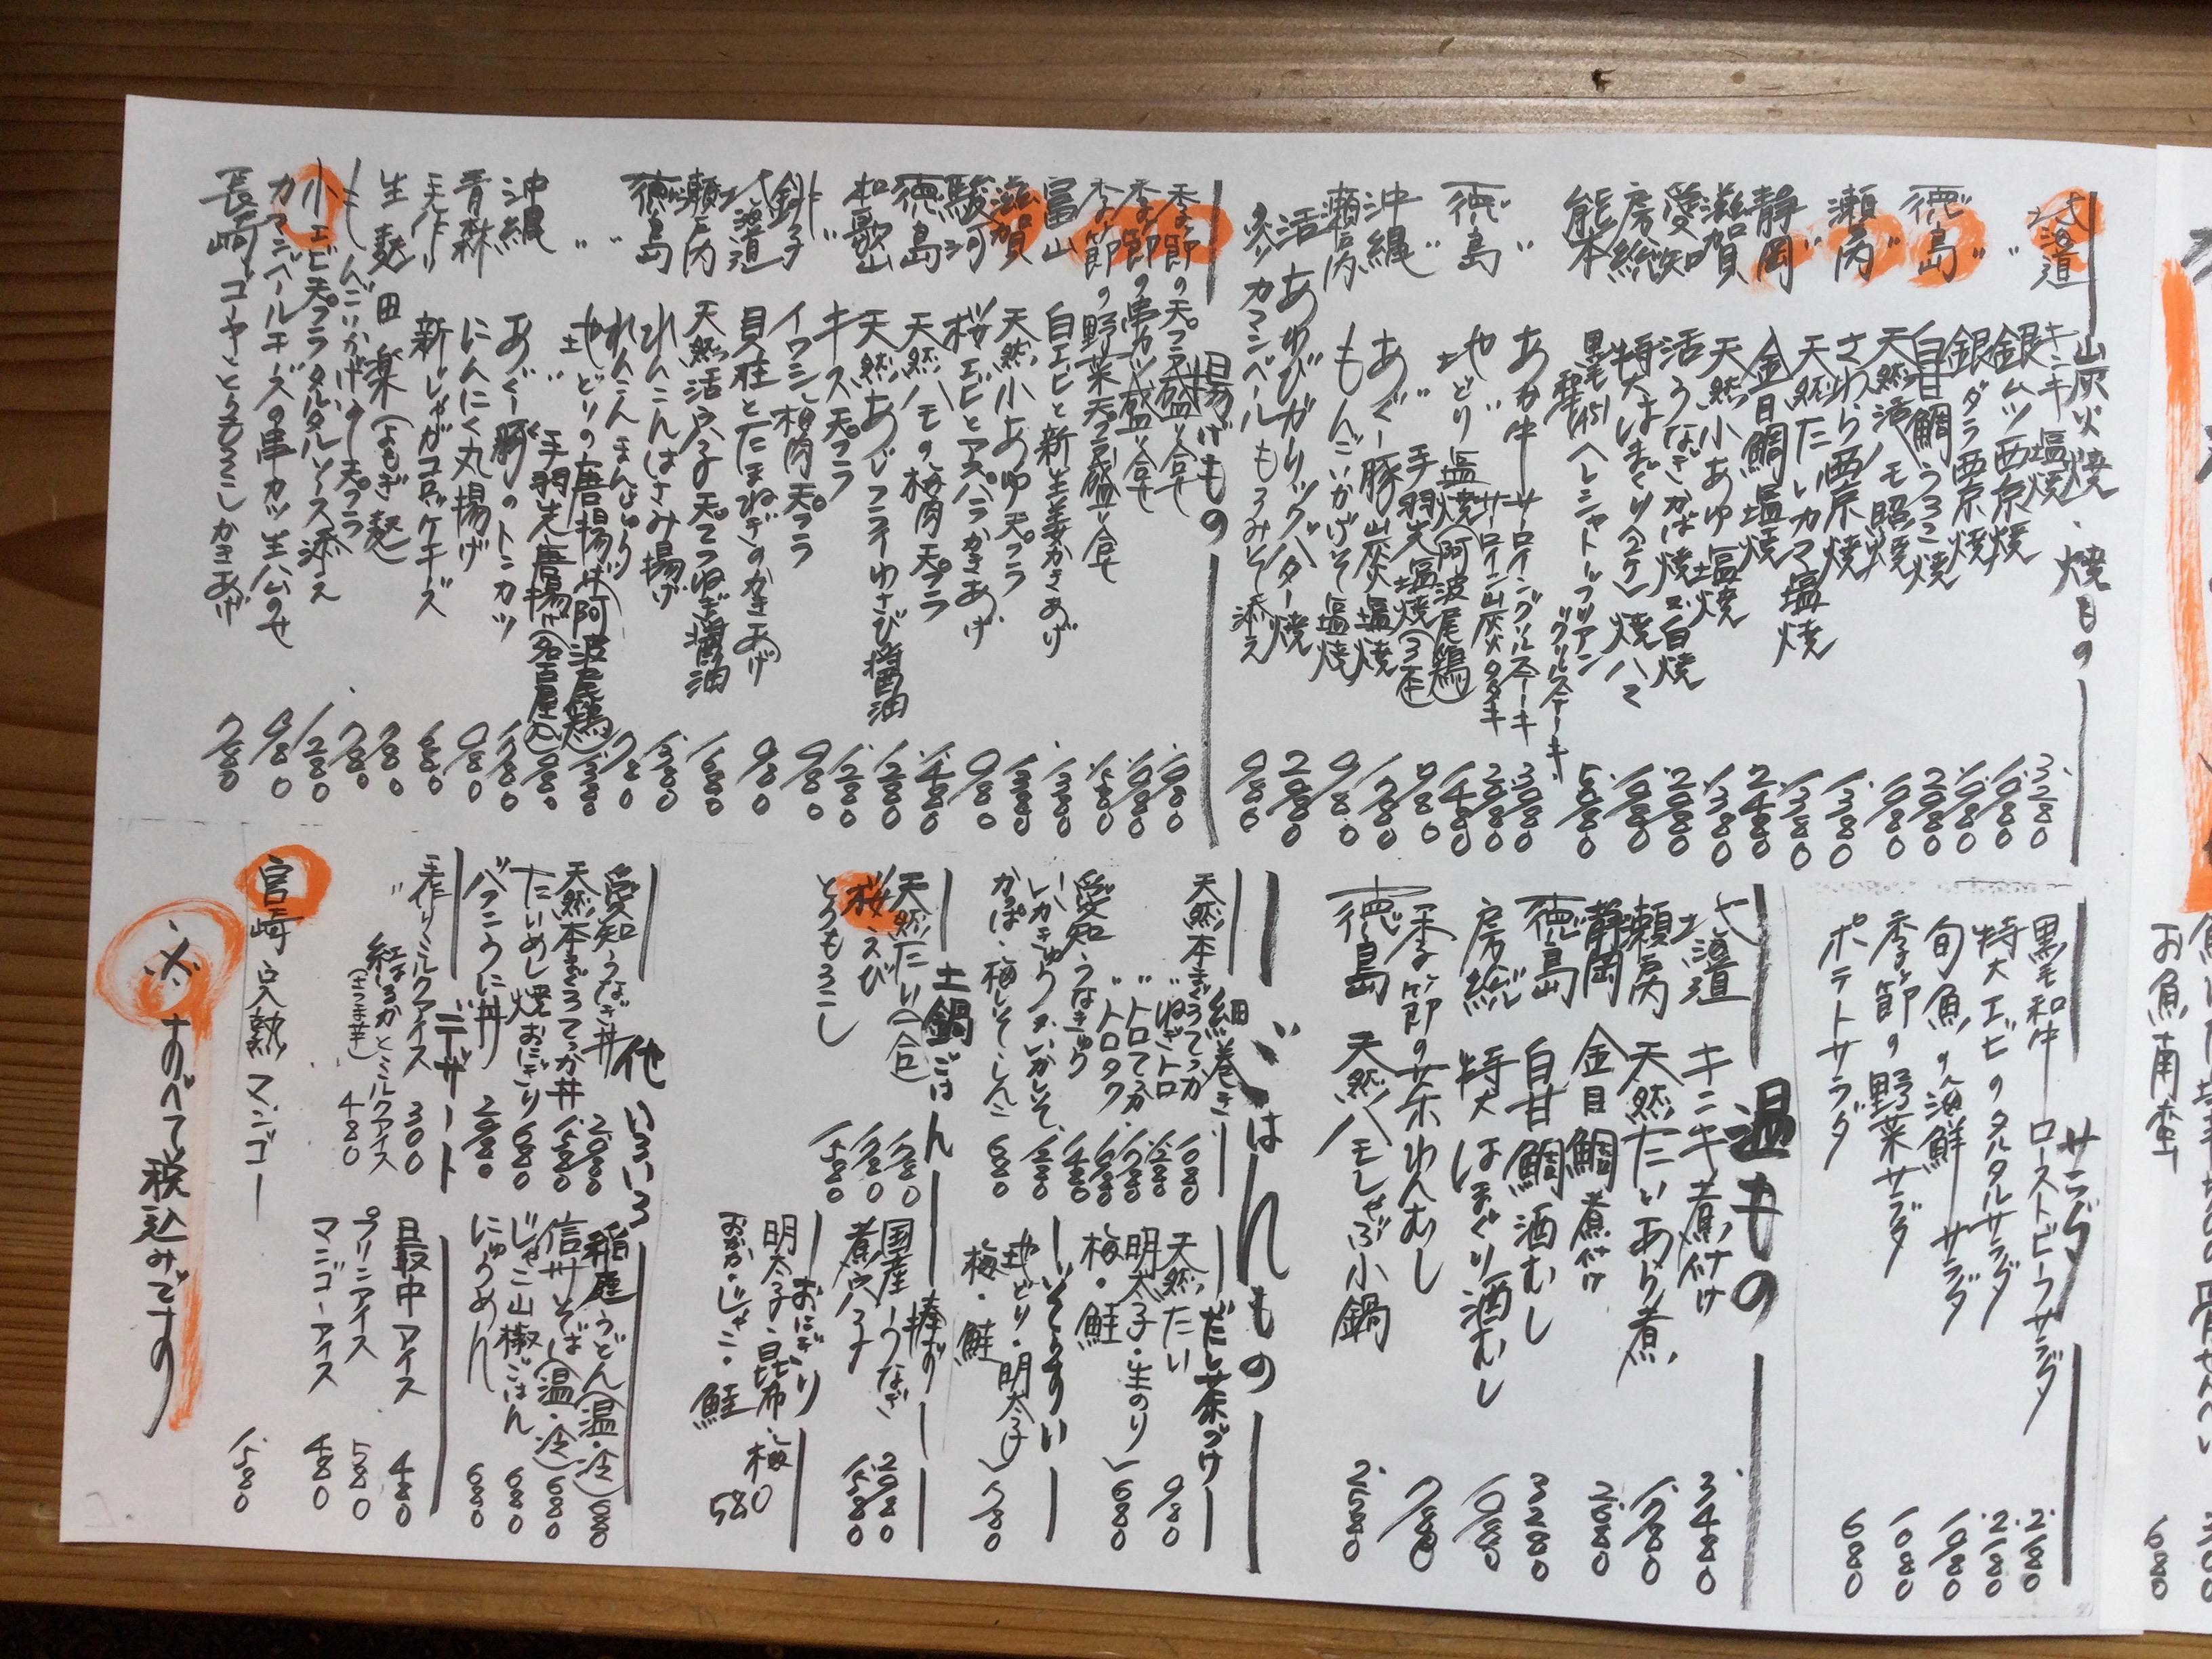 炭火焼、焼きもの
北海道 キンキ塩焼 3280
〃 銀ムツ西京焼 1080
〃 銀ダラ西京焼 1080
徳島 白甘鯛うろこ焼 2080
〃 天然活ハモ照焼 1080
瀬戸内 さわら西京焼 1380
〃 天然たいカマ塩焼 1380
静岡 金目鯛塩焼 2480
滋賀 天然小あゆ塩焼 1380
愛知 活うなぎかば焼又は白焼 2080
房総 特大はまぐり 1080
熊本 黒毛和牛 ヘレシャトーブリアン グリルステーキ
〃 あか牛 サーロイングリルステーキ 3080
サーロイン炭火タタキ 2080
徳島 地どり塩焼(阿波尾鶏) 1480
〃 〃 手羽先塩焼 980
沖縄 あぐー豚炭火塩焼
瀬戸内 もんごいかげそ塩焼 980
活あわびガーリックバター焼 2080
カマンベールもろみそ添え 980
揚げもの
季節の天プラ盛り合せ
季節の串カツ盛り合せ
季節の野菜天プラ盛り合せ
富山 白エビと新生姜かきあげ 1380
滋賀 天然小あゆ天プラ 1380
駿河 桜エビとアスパラかきあげ 980
徳島 天然ハモの梅肉天プラ 1480
和歌山 天然あじフライわさび醤油 1280
〃 キス天プラ 1280
銚子 イワシ梅肉天プラ 980
北海道 貝柱とたまねぎのかきあげ 980
瀬戸内 天然活穴子天プラねぎ醤油 1680
徳島 れんこんはさみ揚げ 1380
〃 れんこんまんじゅう 780
〃 地どりの唐揚げ(阿波尾鶏) 1380
〃 手羽先唐揚げ(名古屋風) 980
沖縄 あぐー豚のトンカツ
青森 にんにく丸揚げ 980
手作り 新じゃがコロッケチーズ 680
生麩田楽(よもぎ麩) 780
もんごいかげそ天プラ 780
小エビ天プラタルタルソース添え 1280
カマンベールチーズの串カツ生ハムのせ 980
長崎 ゴーヤととうもろこしかきあげ 780
サラダ
黒毛和牛ローストビーフサラダ 2180
特大エビのタルタルサラダ 2180
旬魚の海鮮サラダ 1080
季節の野菜サラダ 1080
ポテトサラダ 680
温もの
北海道 キンキ煮付け 3480
瀬戸内 天然たいあら煮 1780
静岡 金目鯛煮付け 2680
徳島 白甘鯛酒むし 3280
房総 特大はまぐり酒むし 1080
季節の茶わんむし 780
徳島 天然ハモしゃぶ小鍋 2580
ごはんもの
細巻き
天然本まぐろてっか 1080
〃 ねぎトロ 1280
〃 トロてっか 1780
〃 トロタク 1680
愛知 うなきゅう 1480
いかきゅう・いかしそ 1280
かっぱ・梅しそ・しんこ 680
だし茶づけ
天然たい 980
明太子・生のり
梅・鮭 680
いそぞうすい
地どり・明太子
梅・鮭 780
土鍋ごはん
天然たい(一合) 1780
桜えび 1780
とうもろこし 1580
棒ずし
国産うなぎ 2980
煮穴子 1580
おにぎり
明太子・昆布・梅
おかか・じゃこ・鮭 580
他いろいろ
愛知うなぎ丼 2080
天然本まぐろてっか丼 1580
たいめし焼おにぎり 680
バフンうに丼 2980
稲庭うどん(温・冷) 680
信州そば(温・冷) 680
じゃこ山椒ごはん 680
にゅうめん 680
デザート
手作りミルクアイス 300
〃 紅はるかとミルクアイス
(さつま芋) 480
最中アイス 480
プリンアイス 580
マンゴーアイス 480
宮崎 完熟マンゴー 1580
※すべて税込みです
お魚南蛮
680